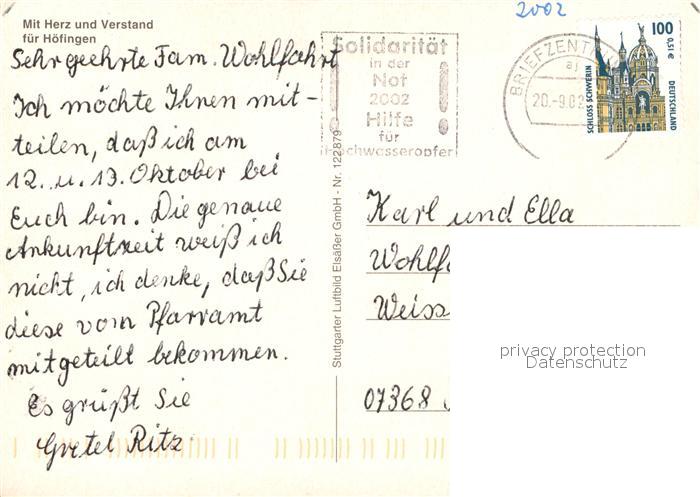 Mit Herz und Verstand
für Höfingen
Sehr geehrte Fam. Wohlfahrt
Ich möchte Ihnen mit-
teilen, daß ich am
12. u. 13. Oktober bei
Euch bin. Die genaue
Ankunftzeit weiß ich
nicht, ich denke, daß Sie
diese vom Pfarramt
mitgeteilt bekommen.
Es grüßt Sie
Gretel Ritz
Stuttgarter Luftbild Elsäßer GmbH - Nr. 122879
2002
Solidarität
in der
Not
2002
Hilfe
für
Hochwasseropfer
BRIEFZENTRUM
20.-9.02
100
0,51 €
SCHLOSS SCHWERIN
DEUTSCHLAND
Karl und Ella
Wohlf
Weiss
07368
privacy protection
Datenschutz